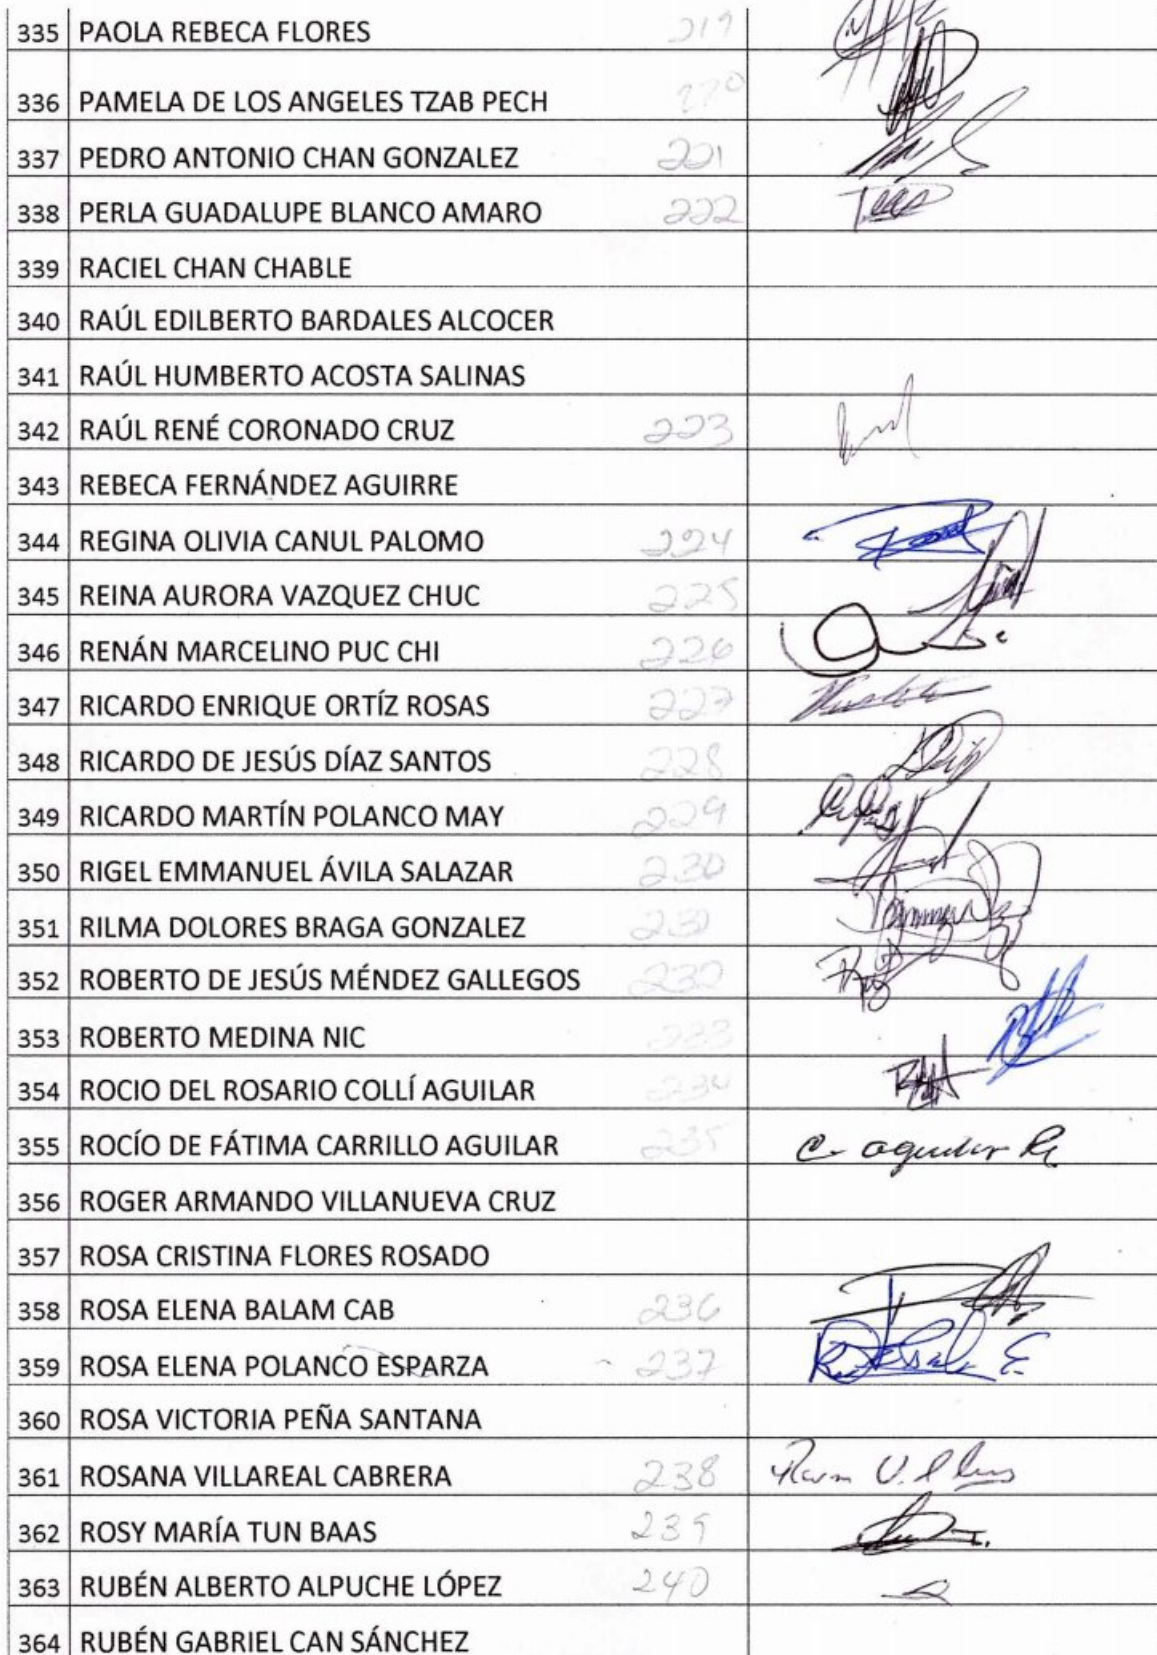 335 PAOLA REBECA FLORES 219
336 PAMELA DE LOS ANGELES TZAB PECH 220
337 PEDRO ANTONIO CHAN GONZALEZ 221
338 PERLA GUADALUPE BLANCO AMARO 222
339 RACIEL CHAN CHABLE
340 RAÚL EDILBERTO BARDALES ALCOCER
341 RAÚL HUMBERTO ACOSTA SALINAS
342 RAÚL RENÉ CORONADO CRUZ 223
343 REBECA FERNÁNDEZ AGUIRRE
344 REGINA OLIVIA CANUL PALOMO 224
345 REINA AURORA VAZQUEZ CHUC 225
346 RENÁN MARCELINO PUC CHI 226
347 RICARDO ENRIQUE ORTÍZ ROSAS 227
348 RICARDO DE JESÚS DÍAZ SANTOS 228
349 RICARDO MARTÍN POLANCO MAY 229
350 RIGEL EMMANUEL ÁVILA SALAZAR 230
351 RILMA DOLORES BRAGA GONZALEZ 231
352 ROBERTO DE JESÚS MÉNDEZ GALLEGOS 232
353 ROBERTO MEDINA NIC 233
354 ROCIO DEL ROSARIO COLLÍ AGUILAR 234
355 ROCÍO DE FÁTIMA CARRILLO AGUILAR 235
356 ROGER ARMANDO VILLANUEVA CRUZ
357 ROSA CRISTINA FLORES ROSADO
358 ROSA ELENA BALAM CAB 236
359 ROSA ELENA POLANCO ESPARZA 237
360 ROSA VICTORIA PEÑA SANTANA
361 ROSANA VILLAREAL CABRERA 238
362 ROSY MARÍA TUN BAAS 239
363 RUBÉN ALBERTO ALPUCHE LÓPEZ 240
364 RUBÉN GABRIEL CAN SÁNCHEZ